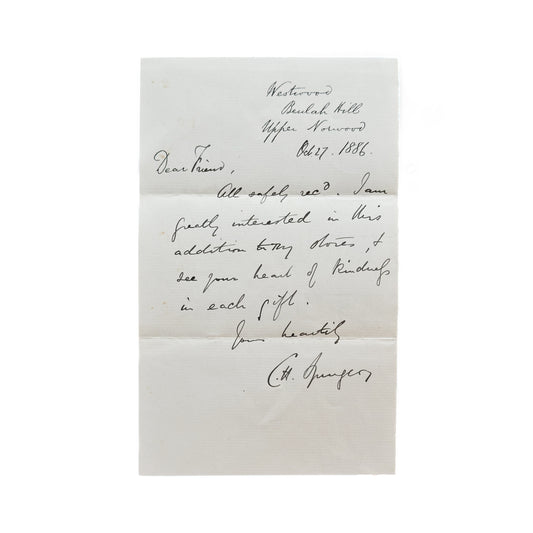 Westwood
Beulah Hill
Upper Norwood
Oct 27. 1886.
Dear Friend,
All safely recd. I am
greatly interested in this
addition to my stores, &
see your heart of kindness
in each gift.
Yours heartily
C. H. Spurgeon